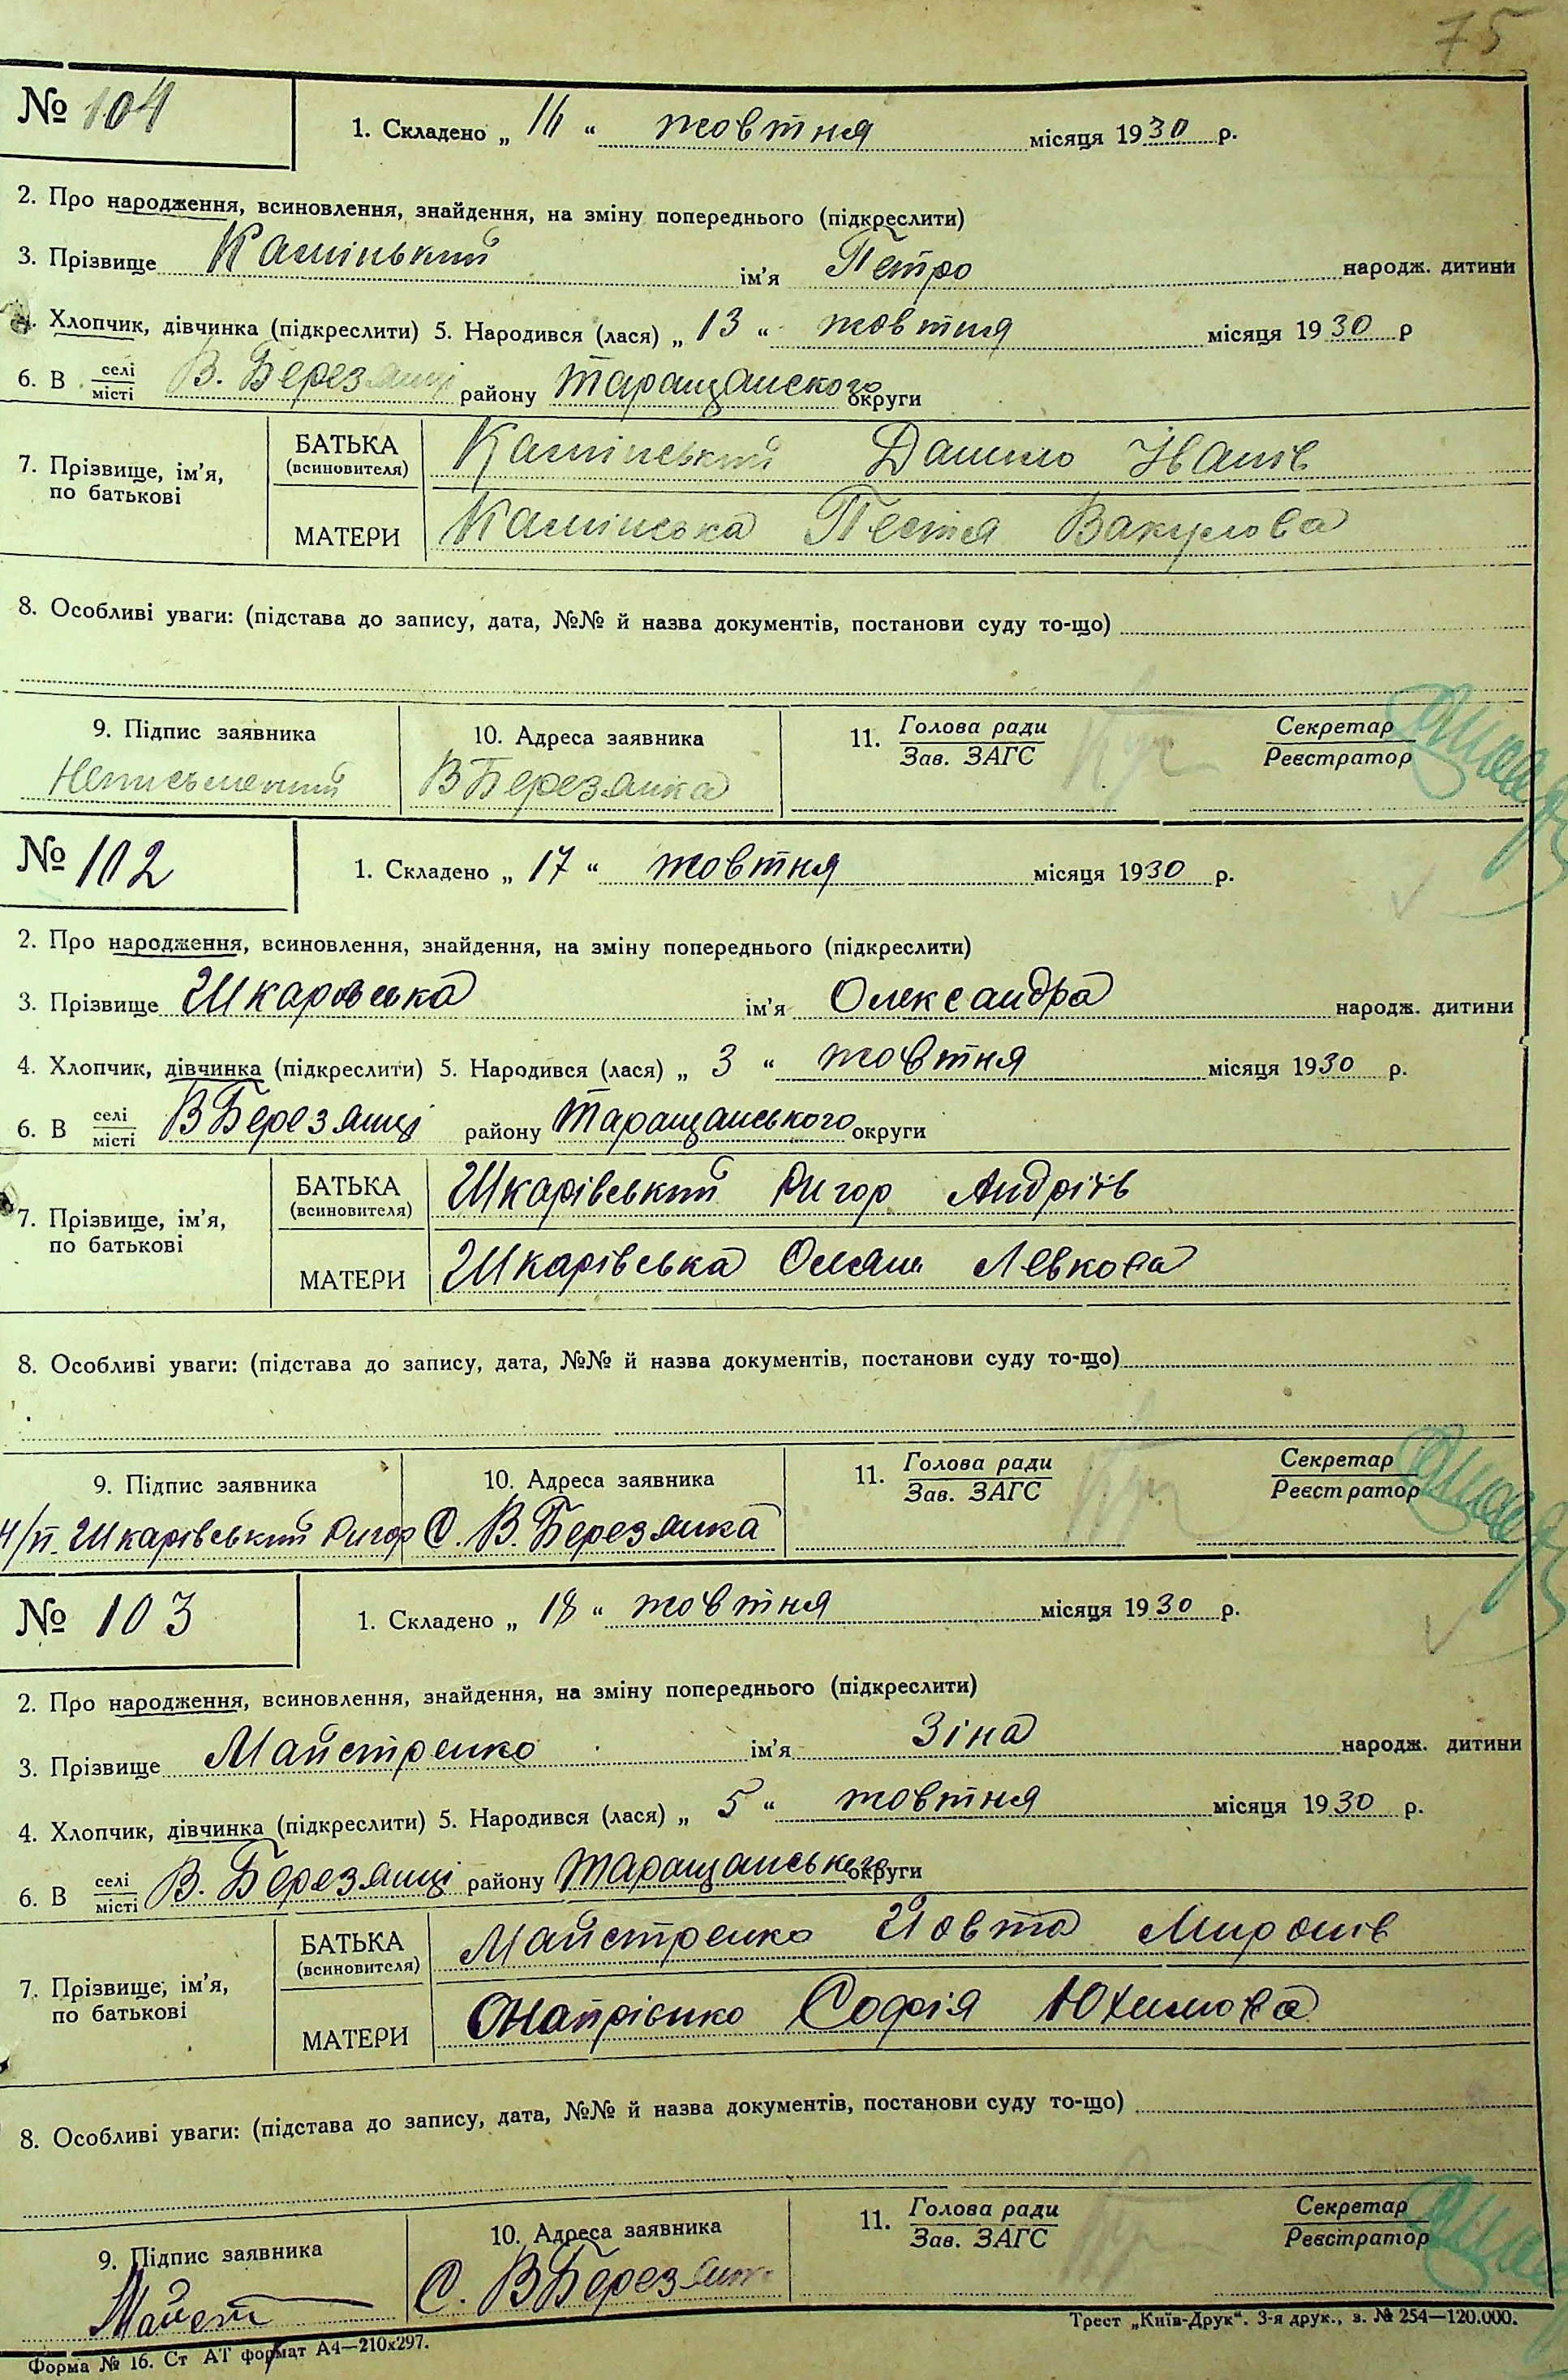 75
№ 104
1. Складено „ 16 “ жовтня місяця 1930 р.
2. Про народження, всиновлення, знайдення, на зміну попереднього (підкреслити)
3. Прізвище Камінький ім’я Петро народж. дитини
4. Хлопчик, дівчинка (підкреслити) 5. Народився (лася) „ 13 “ жовтня місяця 1930 р
6. В селі/місті В. Березянці району Таращанского округи
7. Прізвище, ім’я, по батькові
БАТЬКА (всиновителя) Камінський Данило Іванів
МАТЕРИ Камінська Пестя Вакулова
8. Особливі уваги: (підстава до запису, дата, №№ й назва документів, постанови суду то-що)
9. Підпис заявника 10. Адреса заявника 11. Голова ради/Зав. ЗАГС Секретар/Реєстратор
Неписьменний В Березянка
№ 102
1. Складено „ 17 “ жовтня місяця 1930 р.
2. Про народження, всиновлення, знайдення, на зміну попереднього (підкреслити)
3. Прізвище Шкаровська ім’я Олександра народж. дитини
4. Хлопчик, дівчинка (підкреслити) 5. Народився (лася) „ 3 “ жовтня місяця 1930 р.
6. В селі/місті В Березянці району Таращанського округи
7. Прізвище, ім’я, по батькові
БАТЬКА (всиновителя) Шкарівський Григор Андріїв
МАТЕРИ Шкарівська Левкова
8. Особливі уваги: (підстава до запису, дата, №№ й назва документів, постанови суду то-що)
9. Підпис заявника 10. Адреса заявника 11. Голова ради/Зав. ЗАГС Секретар/Реєстратор
Н/п. Шкарівський Григор С. В. Березянка
№ 103
1. Складено „ 18 “ жовтня місяця 1930 р.
2. Про народження, всиновлення, знайдення, на зміну попереднього (підкреслити)
3. Прізвище Майстренко ім’я Зіна народж. дитини
4. Хлопчик, дівчинка (підкреслити) 5. Народився (лася) „ 5 “ жовтня місяця 1930 р.
6. В селі/місті В. Березянці району Таращанського округи
7. Прізвище, ім’я, по батькові
БАТЬКА (всиновителя) Майстренко Йовта Миронів
МАТЕРИ Онапрієнко Софія Юхимова
8. Особливі уваги: (підстава до запису, дата, №№ й назва документів, постанови суду то-що)
9. Підпис заявника 10. Адреса заявника 11. Голова ради/Зав. ЗАГС Секретар/Реєстратор
Майст С. В Березянк
Форма № 16. Ст АТ формат А4—210х297. Трест „Київ-Друк“. 3-я друк., з. № 254—120.000.